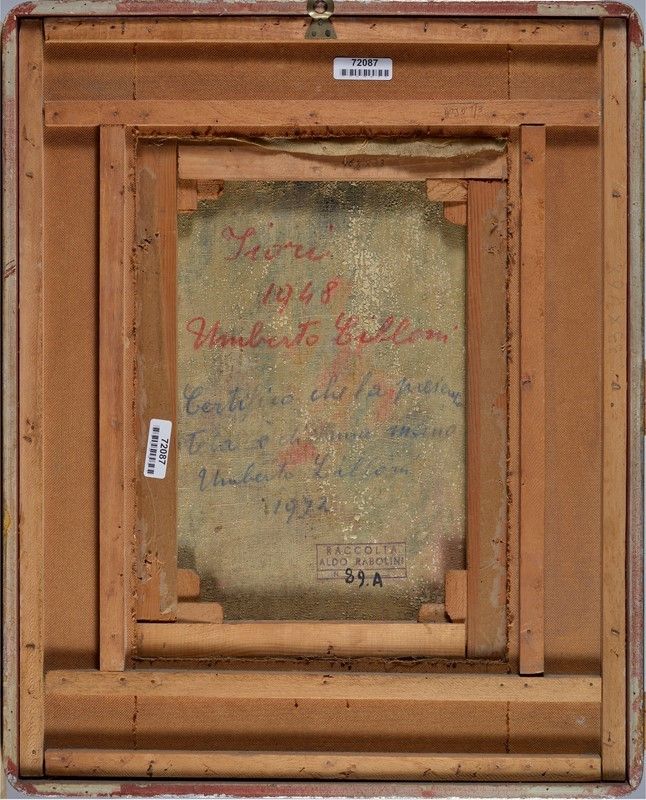 72087
Fiori
1948
Umberto Lilloni
Certifico che la presente
tela è di mia mano
Umberto Lilloni
1972
72087
RACCOLTA
ALDO RABOLINI
89.A